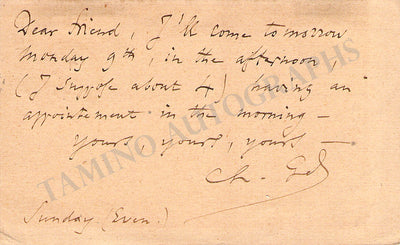 Dear friend, I'll come tomorrow
monday 9th, in the afternoon
(I suppose about 4) having an
appointement in the morning –
yours, yours, yours –
Ch. Gd
Sunday (Even.)
TAMINO AUTOGRAPHS